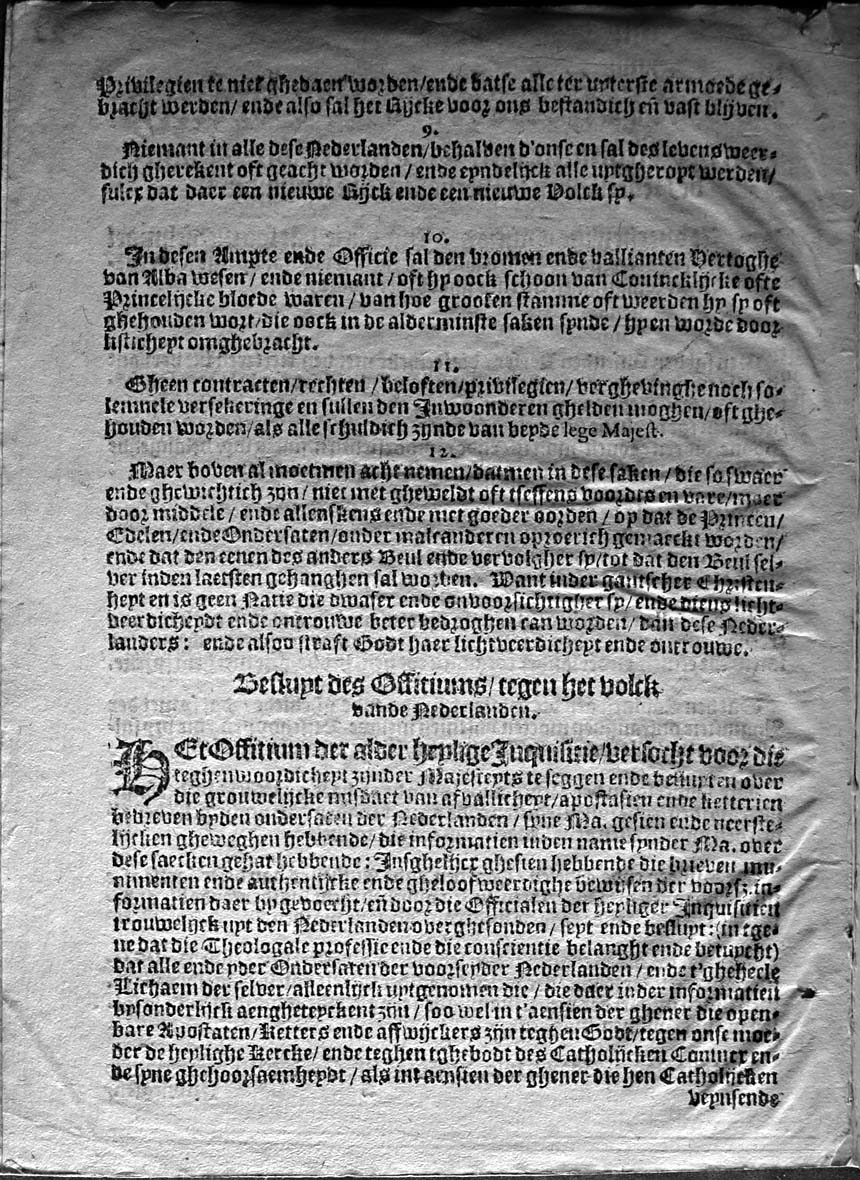 Privilegien te niet ghedaen worden/ende datse alle ter uyterste armoede ge-
bracht werden/ ende also sal het Rijcke voor ons bestandich eñ vast blijven.
9.
Niemant in alle dese Nederlanden/behalven d'onse en sal des levens weer-
dich gherekent oft geacht worden / ende eyndelijck alle uytgheropt werden/
sulcx dat daer een nieuwe Rijck ende een nieuwe Volck sy.
10.
In desen Ampte ende Officie sal den vromen ende vallianten Hertoghe
van Alba wesen / ende niemant / oft hy oock schoon van Conincklijcke ofte
Princelijcke bloede waren / van hoe grooten stamme oft weerden hy sy oft
ghehouden wort/die oock in de alderminste saken synde / hy en worde door
listicheyt omghebracht.
11.
Gheen contracten/rechten /beloften/privilegien/ verghevinghe noch so-
lemnele versekeringe en sullen den Inwoonderen ghelden moghen/oft ghe-
houden worden/als alle schuldich zijnde van beyde lege Majest.
12.
Maer boven al moetmen acht nemen/datmen in dese saken/ die so swaer
ende ghewichtich zijn / niet met gheweldt oft tseffens voordts en vare/maer
door middele / ende allenskens ende met goeder oorden / op dat de Princen/
Edelen/ende Ondersaten/onder malcanderen oproerich gemaeckt worden/
ende dat den eenen des anders Beul ende vervolgher sy/tot dat den Beul sel-
ver inden laetsten gehanghen sal worden. Want inder gantscher Christen-
heyt en is geen Natie die dwaser ende onvoorsichtigher sy/ ende diens licht-
veerdicheydt ende ontrouwe beter bedroghen can worden/ dan dese Neder-
landers: ende alsoo straft Godt haer lichtveerdicheyt ende ontrouwe.
Besluyt des Offitiums/ tegen het volck
vande Nederlanden.
HEt Offitium der alder heylige Inquisitie/versocht voor die
teghenwoordicheyt zijnder Majesteyts te seggen ende besluyten over
die grouwelijcke misdaet van afvallicheyt/apostasien ende ketterien
bedreven byden ondersaten der Nederlanden / syne Ma. gesien ende neerste-
lijcken gheweghen hebbende/ die informatien inden name synder Ma. over
dese saecken gehat hebbende: Insghelijcx ghesien hebbende die brieven mu-
nimenten ende authentijcke ende gheloofweerdighe bewijsen der voorsz. in-
formatien daer by gevoecht/ eñ door die Officialen der heyliger Inquisitien
trouwelijck uyt den Nederlanden overghesonden / seyt ende besluyt: (in tge-
ne dat die Theologale professie ende die conscientie belanght ende betuycht)
dat alle ende yder Ondersaten der voorseyder Nederlanden / ende t'gheheele
Lichaem der selver/alleenlijck uytgenomen die / die daer inder informatien
bysonderlijck aengheteyckent zijn / soo wel in t'aensien der ghener die open-
bare Apostaten/Ketters ende affwijckers zijn teghen Godt/tegen onse moe-
der de heylighe Kercke/ ende teghen tghebodt des Catholijcken Conincx en-
de syne ghehoorsaemheydt / als int aensien der ghener die hen Catholijcken
veynsende